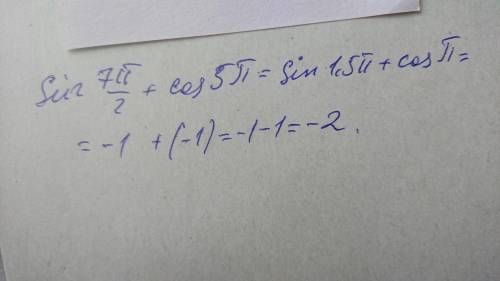 sin 7π/2 + cos 5π = sin 1,5π + cos π =
= -1 + (-1) = -1 - 1 = -2.